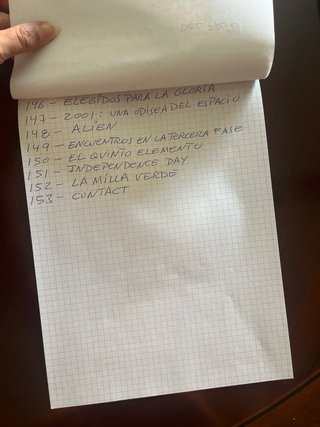 146 - ELEGIDOS PARA LA GLORIA
147 - 2001: UNA ODISEA DEL ESPACIO
148 - ALIEN
149 - ENCUENTROS EN LA TERCERA FASE
150 - EL QUINTO ELEMENTO
151 - INDEPENDENCE DAY
152 - LA MILLA VERDE
153 - CONTACT